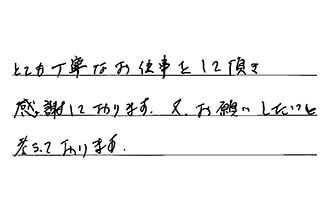 とても丁寧なお仕事をして頂き
感謝しております。又、お願いしたいと
考えております。